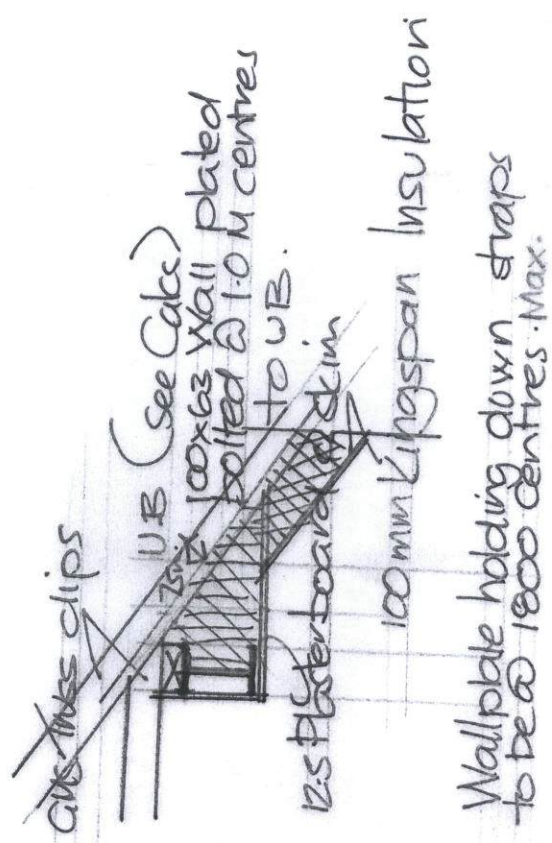 Truss clips
UB (see Calcs)
100x63 Wall plated
bolted @ 1.0 M centres
to UB.
12.5 Plasterboard & skim
100 mm Kingspan Insulation
Wallplate holding down straps
to be @ 1800 centres. Max.